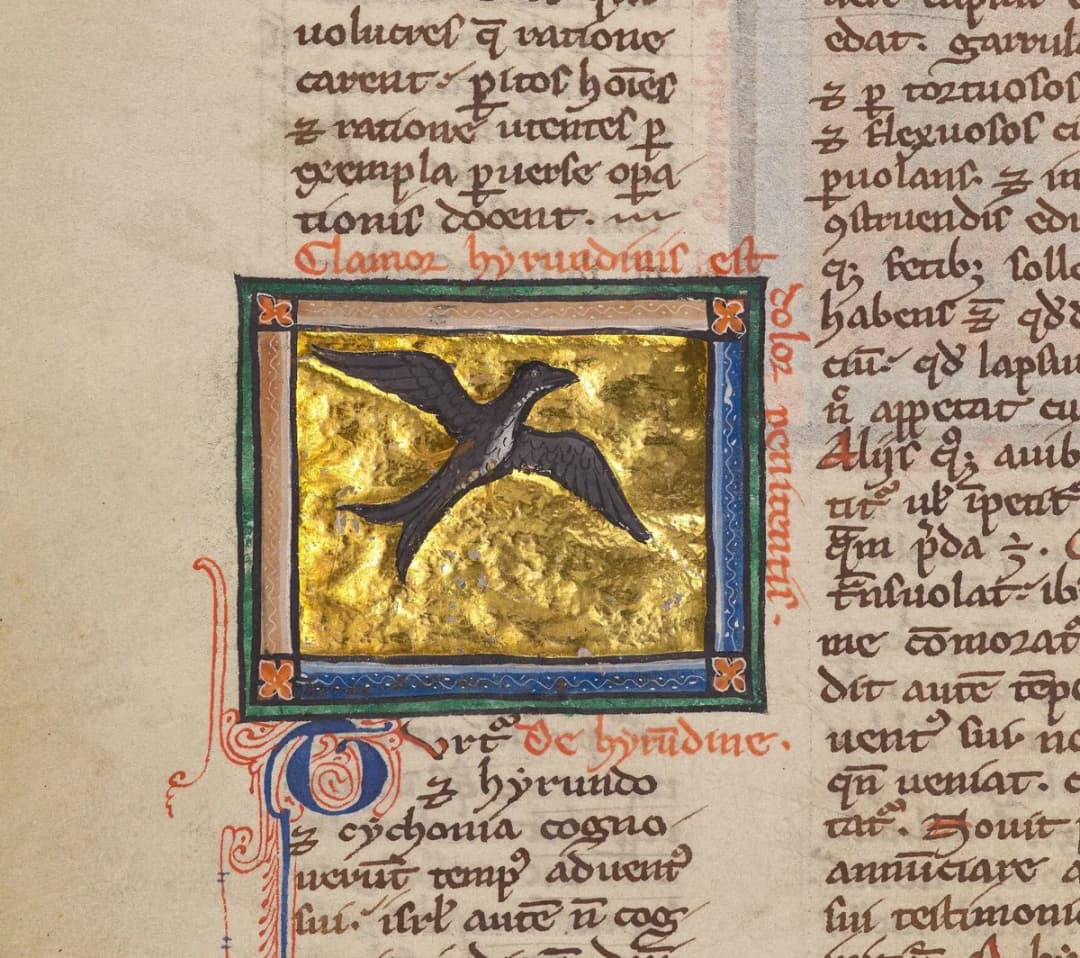 uolucres q̄ ratione
carent· ꝑitos hoīes
⁊ ratione utentes ꝑ
exempla ꝑuerse oꝑa
tionis docent.
Clamor hyrundinis est
dolor penitentis.
Turtᷓ De hyrūdine.
⁊ hyrundo
⁊ cychonia cogno
uerūt tempꝰ aduentꝰ
sui· isrł autē n̄ cog
edat. garrul
⁊ ꝑ tortuosos
⁊ flexuosos ci
ꝑuolans· ⁊ in
ꝯstruendis edu
q; fetib; solle
habens
ciū· qd̓ lapsu
n̄ appetat cu
Alijs q; auib
ꝗ̄m p̄da
t̄nsuolat· ib
me cōmoratᷓ
dit autē tēpo
uentꝰ sui· no
qn̄ ueniat.
tatᷓ. Nouit
annūciare a
sui testimoni